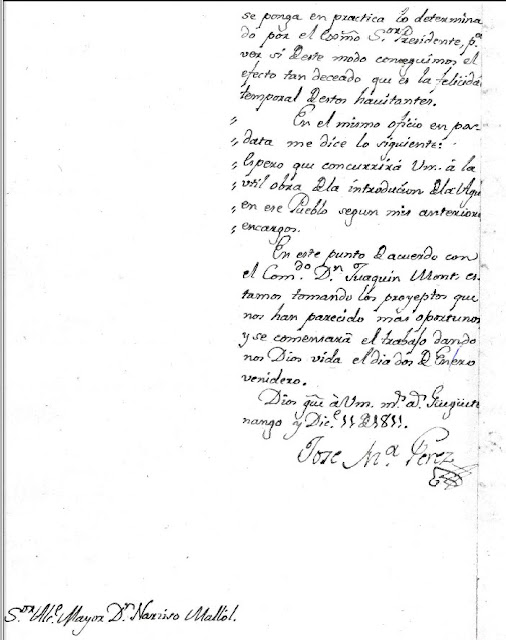 se ponga en practica lo determina
do por el Exm̃o S.or Presidente, p.a
ver si de este modo conseguimos el
efecto tan deceado que es la felicidad
temporal destos havitantes.
„ En el mismo oficio en pos-
„ data me dice lo siguiente:
„ Espero que concurrirá Vm. á la
„ util obra de la introducion de la Agua
„ en ese Pueblo segun mis anteriores
„ encargos.
En este punto de acuerdo con
el Com.do D.n Juaquin Mont. es-
tamos tomando los proyeptos que
nos han parecido mas oportunos
y se comensará el trabajo dando
nos Dios vida el dia dos de Enero
venidero.
Dios gũe à Vm. m.s a.s Gueguete
nango y Dic.e 11 de 1811.
Jose M.a Perez
S.or Alc.e Mayor D.n Narciso Mallol.